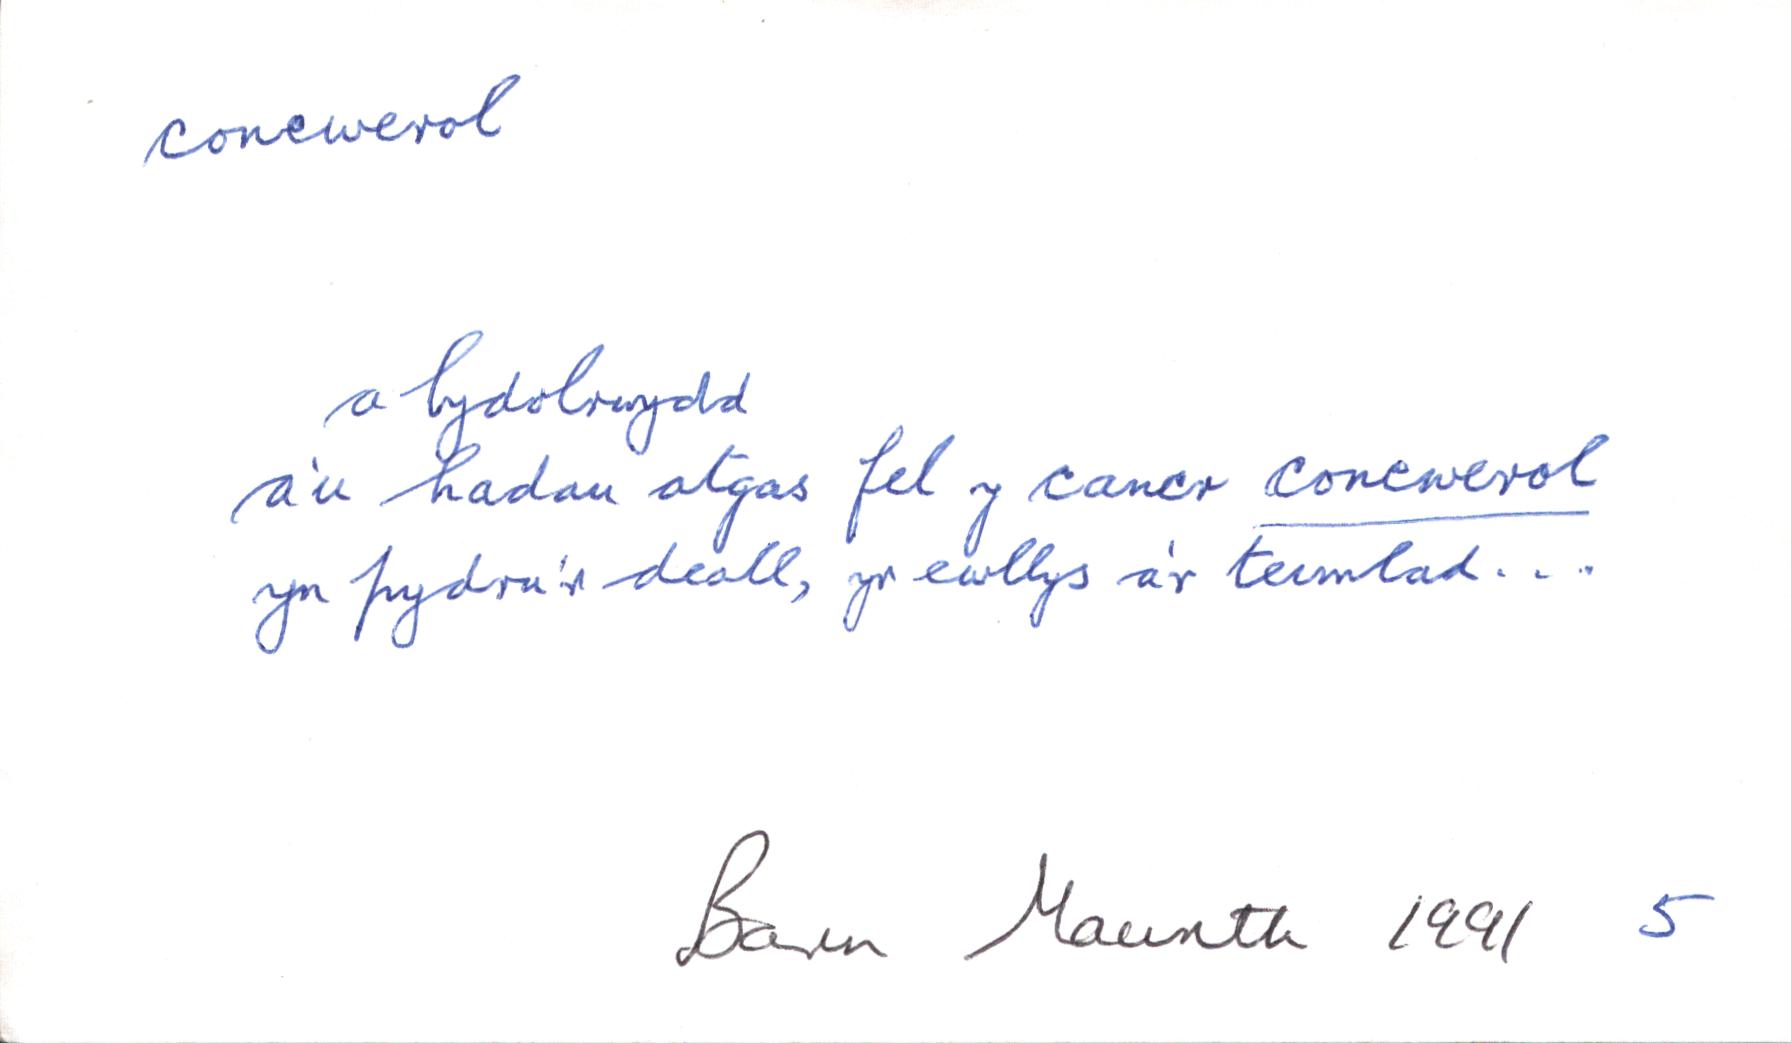 concwerol
a bydolrwydd
a'u hadau atgas fel y cancr concwerol
yn pydru'r deall, yr ewllys a'r teimlad...
Barn Mawrth 1991 5